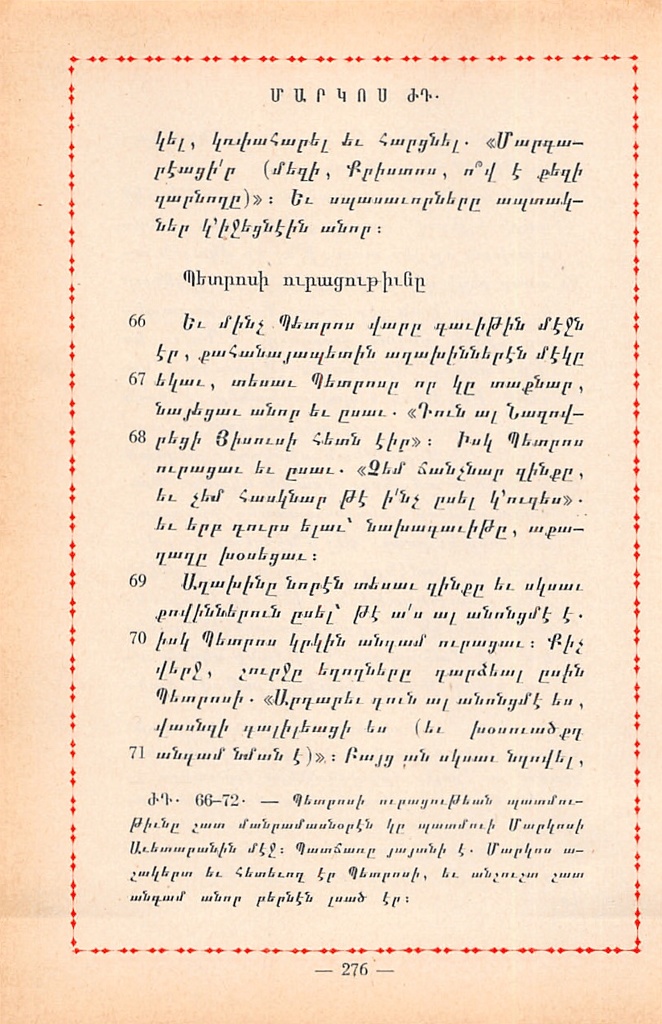 ՄԱՐԿՈՍ ԺԴ.
կել, կռփահարել եւ հարցնել. «Մարգա—
րէացի՛ր (մեզի, Քրիստոս, ո՞վ է քեզի
զարնողը)»։ Եւ սպասաւորները ապտակ—
ներ կ՚իջեցնէին անոր։
Պետրոսի ուրացութիւնը
66 Եւ մինչ Պետրոս վարը գաւիթին մէջն
էր, քահանայապետին աղախիններէն մէկը
67 եկաւ, տեսաւ Պետրոսը որ կը տաքնար,
նայեցաւ անոր եւ ըսաւ. «Դուն ալ Նազով—
68 րեցի Յիսուսի հետն էիր»։ Իսկ Պետրոս
ուրացաւ եւ ըսաւ. «Չեմ ճանչնար զինքը,
եւ չեմ հասկնար թէ ի՛նչ ըսել կ՚ուզես».
եւ երբ դուրս ելաւ՝ նախագաւիթը, աքա—
ղաղը խօսեցաւ։
69 Աղախինը նորէն տեսաւ զինքը եւ սկսաւ
քովիններուն ըսել՝ թէ ա՛ս ալ անոնցմէ է.
70 իսկ Պետրոս կրկին անգամ ուրացաւ։ Քիչ
վերջ, շուրջը եղողները դարձեալ ըսին
Պետրոսի. «Արդարեւ դուն ալ անոնցմէ ես,
վասնզի գալիլեացի ես (եւ խօսուածքդ
71 անգամ նման է)»։ Բայց ան սկսաւ նզովել,
ԺԴ. 66—72. — Պետրոսի ուրացութեան պատմու—
թիւնը շատ մանրամասնօրէն կը պատմուի Մարկոսի
Աւետարանին մէջ։ Պատճառը յայտնի է. Մարկոս ա—
շակերտ եւ հետեւող էր Պետրոսի, եւ անշուշտ շատ
անգամ անոր բերնէն լսած էր։
— 276 —